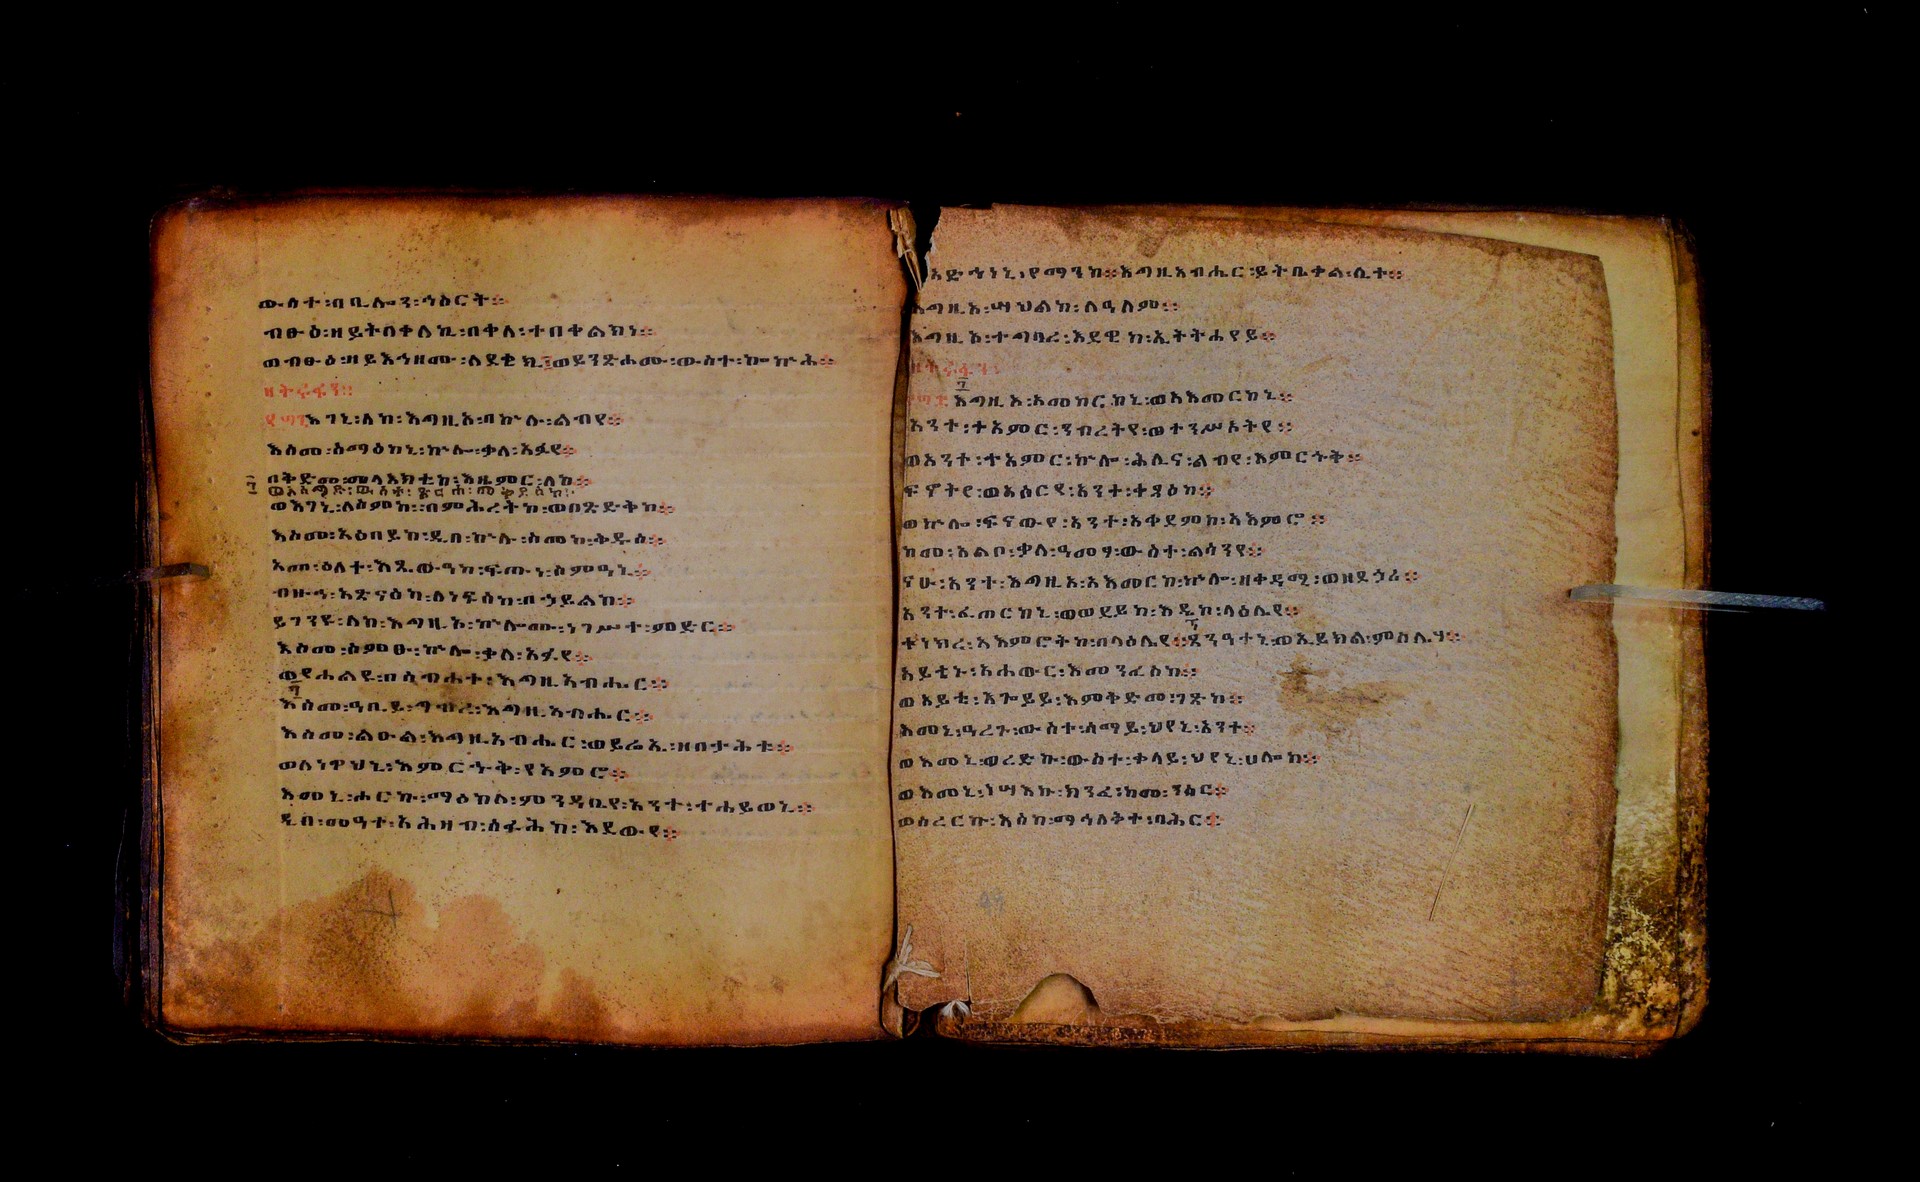 ውስተ፡ባቢሎን፡ኅስርት።
ብፁዕ፡ዘይትበቀለኪ፡በቀለ፡ተበቀልክነ።
ወብፁዕ፡ዘይእኅዘሙ፡ለደቂቂኪ፡ወይንጽሖሙ፡ውስተ፡ኰኵሕ።
ዘትሩፋን።
እገኒ፡ለከ፡እግዚኦ፡በኵሉ፡ልብየ።
እስመ፡ሰማዕከኒ፡ኵሎ፡ቃለ፡አፉየ።
በቅድመ፡መላእክቲከ፡እዜምር፡ለከ።
ወእሰግድ፡ውስተ፡ጽርሐ፡መቅደስከ።
ወእገኒ፡ለስምከ፡በምሕረትከ፡ወበጽድቅከ።
እስመ፡አዕበይከ፡ዲበ፡ኵሉ፡ስመከ፡ቅዱሰ።
አመ፡ዕለተ፡እጼውዓከ፡ፍጡነ፡ስምዓኒ።
ብዙኃ፡አጽናዕካ፡ለነፍስከ፡በኃይልከ።
ይገንዩ፡ለከ፡እግዚኦ፡ኵሎሙ፡ነገሥተ፡ምድር።
እስመ፡ሰምዑ፡ኵሎ፡ቃለ፡አፉየ።
ወየሐልዩ፡በስብሐተ፡እግዚአብሔር።
እስመ፡ዓቢይ፡ግብረ፡እግዚአብሔር።
እስመ፡ልዑል፡እግዚአብሔር፡ወይሬኢ፡ዘበታሕቱ።
ወለነዋኅኒ፡እምርኁቅ፡የአምሮ።
እመኒ፡ሖርኩ፡ማዕከለ፡ምንዳቤየ፡አንተ፡ተሐይወኒ።
ዲበ፡መዓተ፡አሕዛብ፡ሰፋሕከ፡እደውየ።
አድኅነኒ፡የማንከ።እግዚአብሔር፡ይትቤቀል፡ሊተ።
እግዚኦ፡ሣህልከ፡ለዓለም።
እግዚኦ፡ተግባረ፡እደዊከ፡ኢትትሐየይ።
ዘትሩፋን።
እግዚኦ፡አመከርከኒ፡ወአእመርከኒ።
አንተ፡ተአምር፡ንብረትየ፡ወተንሥኦትየ።
ወአንተ፡ተአምር፡ኵሎ፡ሕሊና፡ልብየ፡እምርኁቅ።
ፍኖትየ፡ወአሰርየ፡አንተ፡ቀጻዕከ።
ወኵሎ፡ፍናውየ፡አንተ፡አቀደምከ፡አእምሮ።
ከመ፡አልቦ፡ቃለ፡ዓመፃ፡ውስተ፡ልሳንየ።
ናሁ፡አንተ፡እግዚኦ፡አእመርከ፡ኵሎ፡ዘቀዳሚ፡ወዘደኃሪ።
አንተ፡ፈጠርከኒ፡ወወደይከ፡እዴከ፡ላዕሌየ።
ተነክረ፡አእምሮትከ፡በላዕሌየ።ጸንዓተኒ፡ወኢይክል፡ምስሌሃ።
አይቴኑ፡አሐውር፡እመንፈስከ።
ወአይቴ፡እጐይይ፡እምቅድመ፡ገጽከ።
እመኒ፡ዓረጉ፡ውስተ፡ሰማይ፡ህየኒ፡አንተ።
ወእመኒ፡ወረድኩ፡ውስተ፡ቀላይ፡ህየኒ፡ሀሎከ።
ወእመኒ፡ነሣእኩ፡ክንፈ፡ከመ፡ንስር።
ወሰረርኩ፡እስከ፡ማኅለቅተ፡ባሕር።